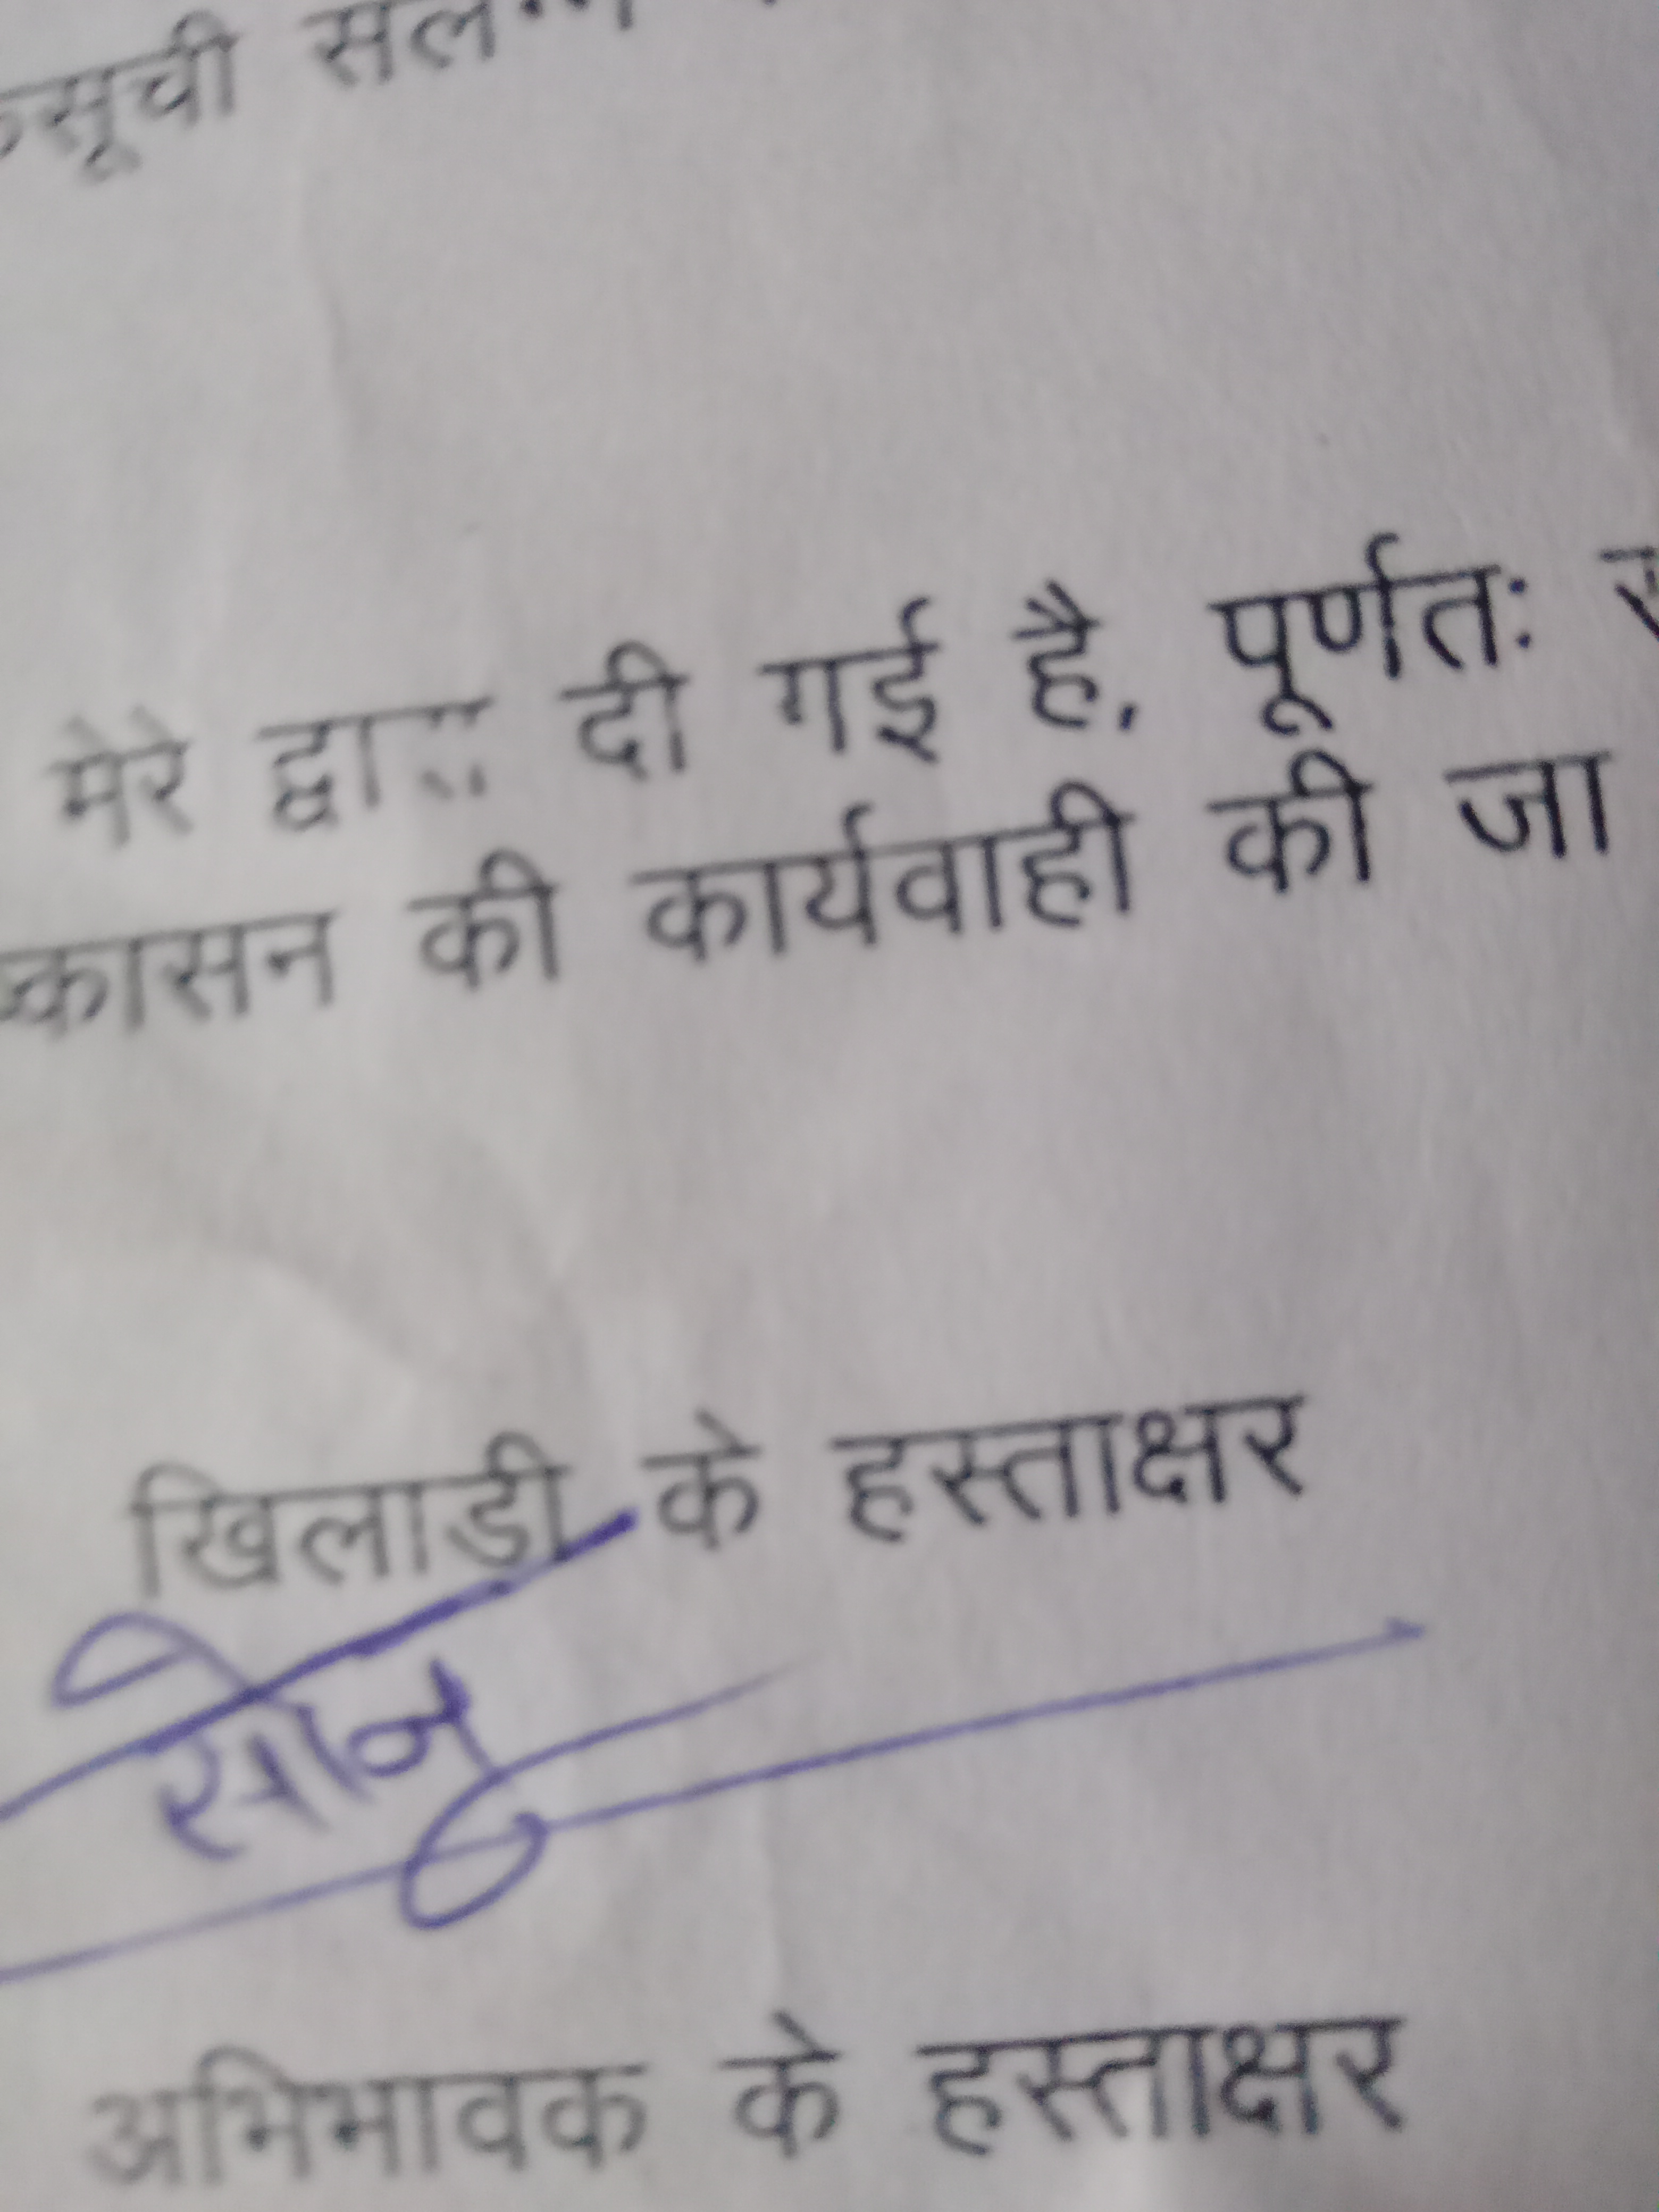 सूची
मेरे द्वारा दी गई है, पूर्णतः
ष्कासन की कार्यवाही की जा
खिलाडी के हस्ताक्षर
सोनू
अभिभावक के हस्ताक्षर